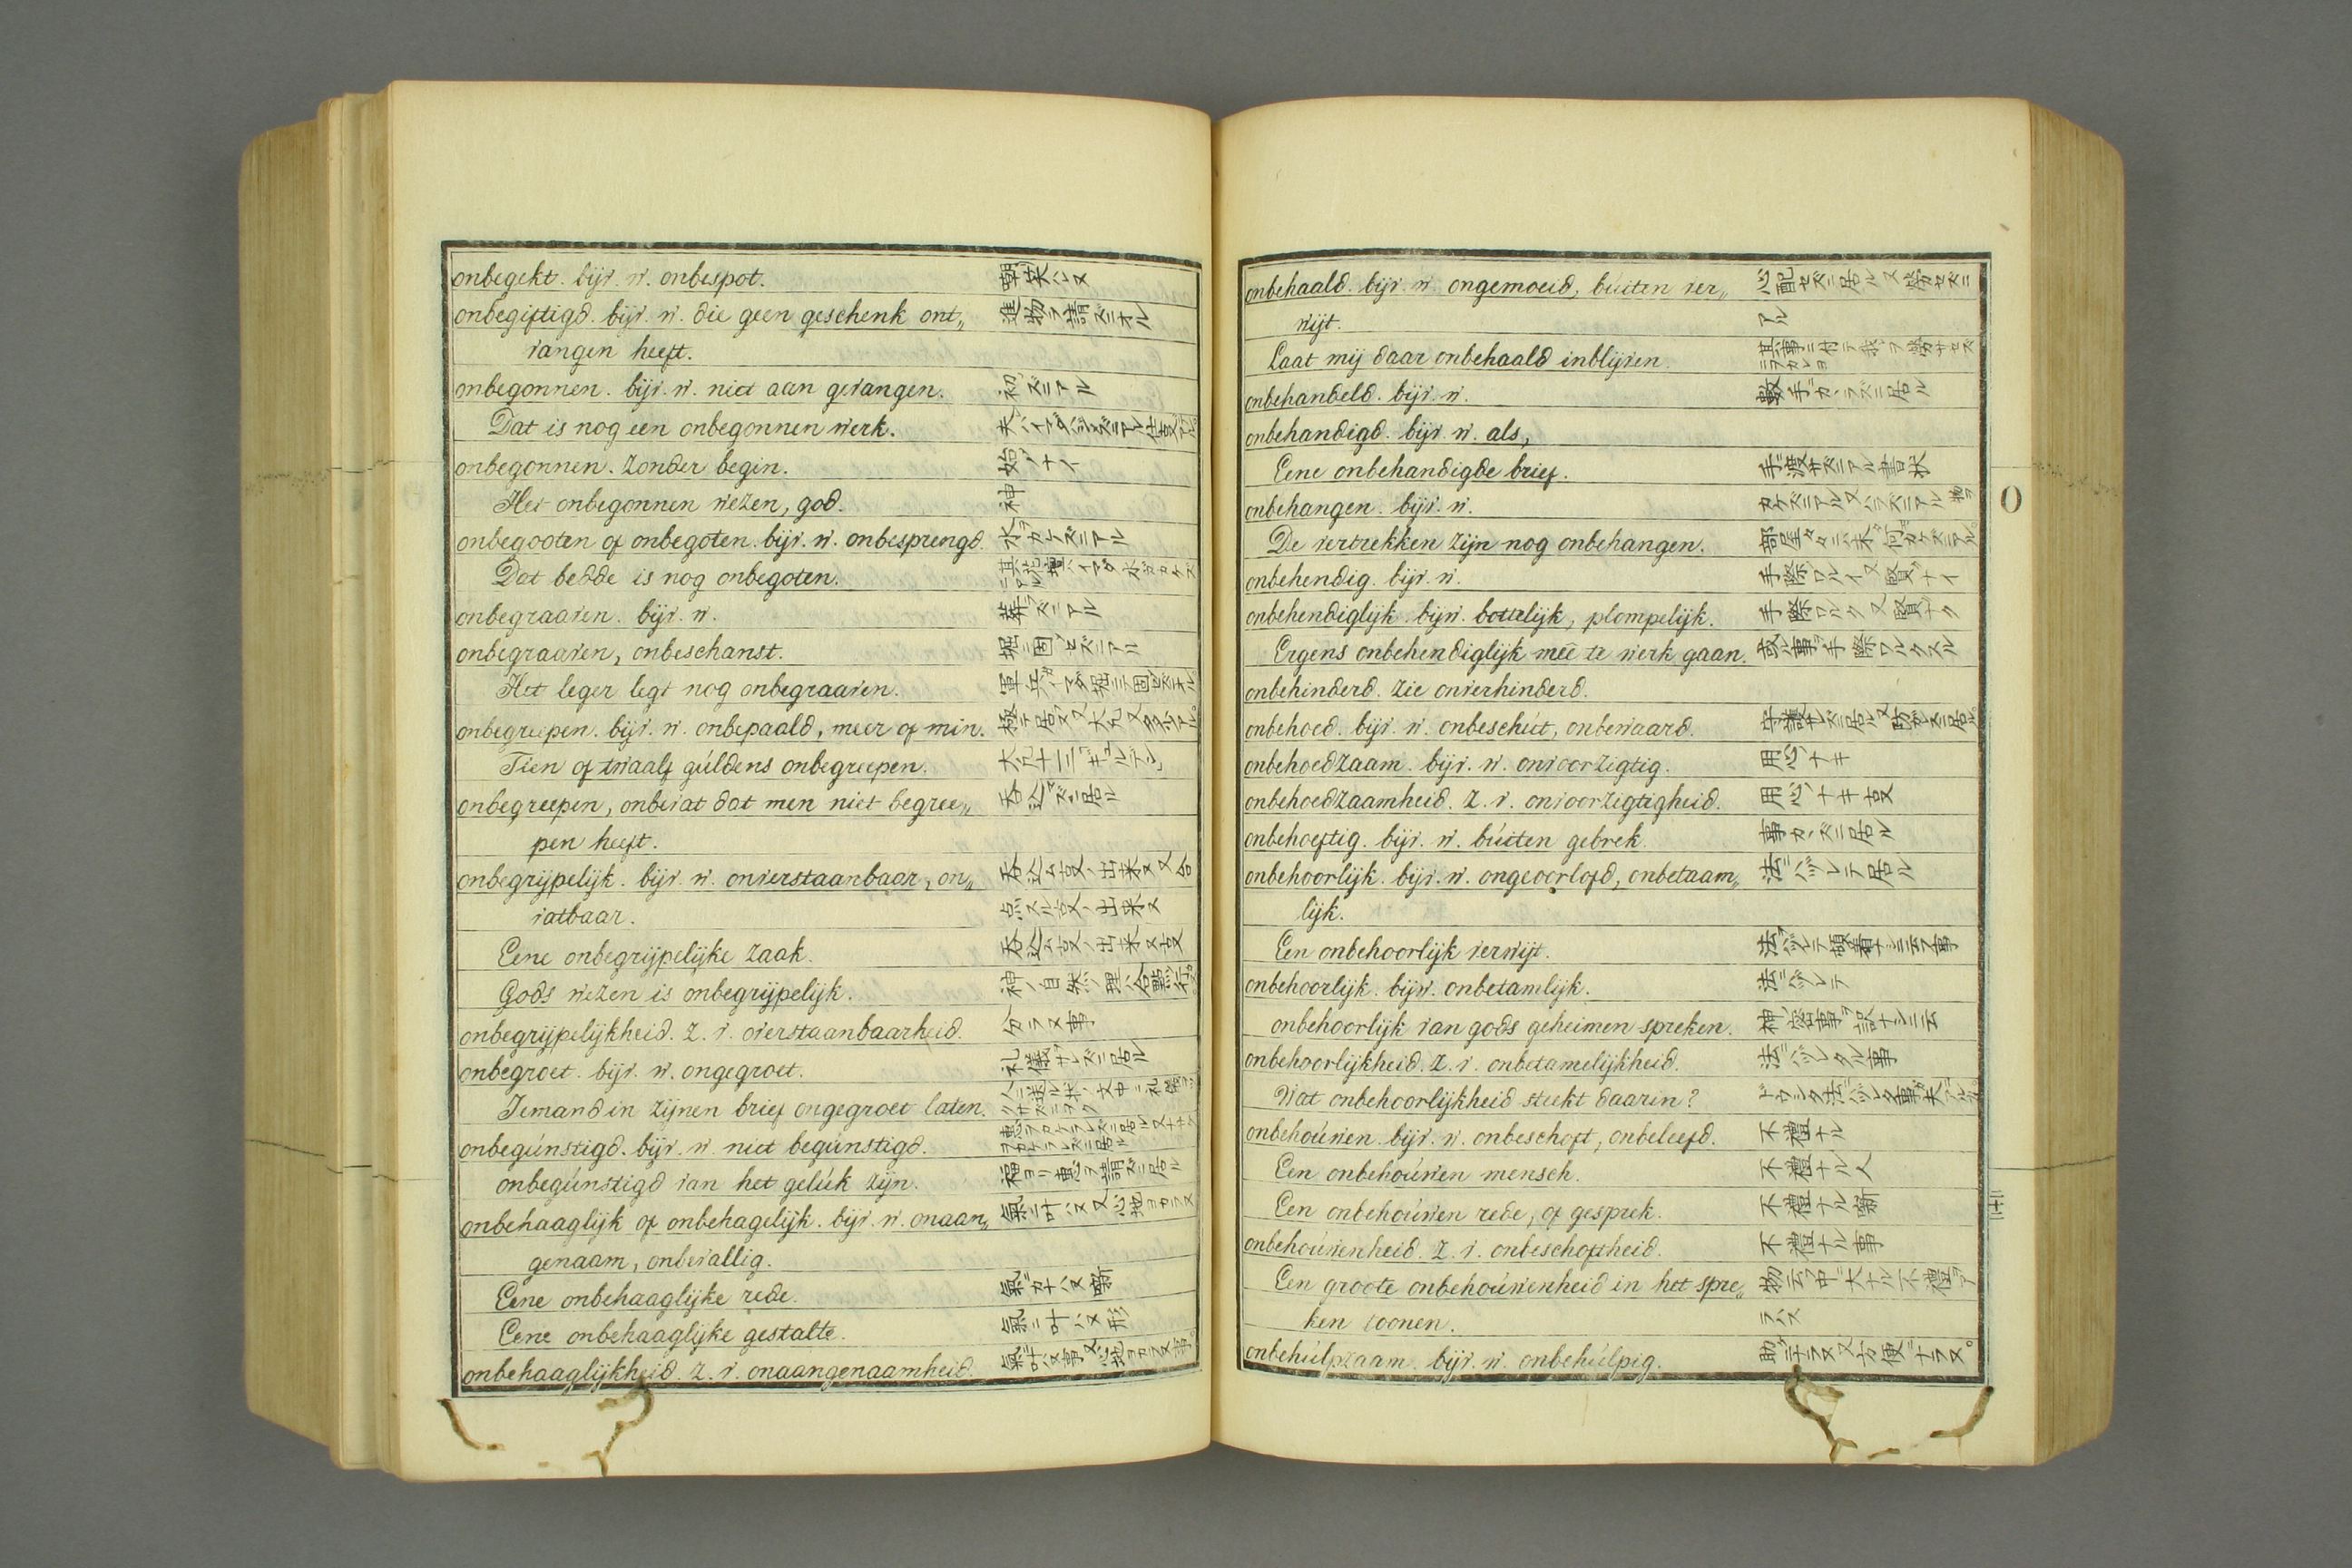 onbegekt. bijv. w. onbespot. 嘲笑ハヌ
onbegiftigd. bijv. w. die geen geschenk ont„ 進物ヲ請ズニオル
vangen heeft.
onbegonnen. bijv. w. niet aan gevangen. 初ズニアル
Dat is nog een onbegonnen werk.
onbegonnen. zonder begin. 始ノナイ
Het onbegonnen wezen, god. 神
onbegooten of onbegoten. bijv. w. onbesprengd. 水ヲカケズニアル
Dat bedde is nog onbegoten.
onbegraaven. bijv. w. 葬ズニアル
onbegraaven, onbeschanst. 堀ニ固メズニアル
Het leger legt nog onbegraaven.
onbegreepen. bijv. w. onbepaald, meer of min.
Tien of twaalf gúldens onbegreepen.
onbegreepen, onbevat dat men niet begree„ 呑込ズニ居ル
pen heeft.
onbegrijpelijk. bijv. w. onverstaanbaar, on„ 呑込ム亥ノ出来ヌ又合
vatbaar. 点スル亥ノ出来ヌ
Eene onbegrijpelijke zaak. 呑込ム亥ノ出来ヌ亥
Gods wezen is onbegrijpelijk.
onbegrijpelijkheid. z. v. overstaanbaarheid. 分ラヌ事
onbegroet. bijv. w. ongegroet. 礼儀サレズニ居ル
Iemand in zijnen brief ongegroet laten.
onbegúnstigd. bijv. w. niet begúnstigd.
onbegúnstigd van het gelúk zijn. 福ヨリ恵ヲ請ズニ居ル
onbehaaglijk of onbehagelijk. bijv. w. onaan„ 氣ニ叶ハヌ又心地ヨカラヌ
genaam, onbevallig.
Eene onbehaaglijke rede. 氣ニカナハヌ噺
Eene onbehaaglijke gestalte. 氣ニ叶ハヌ形
onbehaaglijkheid. z. v. onaangenaamheid. 氣ニ叶ハヌ事又心地ヨカラヌ事。
onbehaald. bijv. w. ongemoeid, búiten ver„ 心配セズニ居ル又労セズニ
wijt. アル
Laat mij daar onbehaald inblijven.
onbehandeld. bijv. w. 手ニカヽラズニ居ル
onbehandigd. bijv. w. als,
Eene onbehandigde brief. 手渡サズニアル書状
onbehangen. bijv. w. カケズニアル又ハラズニアル
De vertrekken zijn nog onbehangen.
onbehendig. bijv. w. 手際ワルイ又賢ナイ
onbehendiglijk. bijw. bottelijk, plompelijk. 手際ワルク又賢ナク
Ergens onbehendiglijk meê te werk gaan. 或事ヲ手際ワルクスル
onbehinderd. zie onverhinderd.
onbehoed. bijv. w. onbeschút, onbewaard. 守護セズニ居ル又防ズニ居ル。
onbehoedzaam. bijv. w. onvoorzigtig. 用心ナキ
onbehoedzaamheid. z. v. onvoorzigtigheid. 用心ナキ亥
onbehoeftig. bijv. w. búiten gebrek. 事カヽズニ居ル
onbehoorlijk. bijv. w. ongeoorlofd, onbetaam„ 法ニハヅレテ居ル
lijk.
Een onbehoorlijk verwijt.
onbehoorlijk. bijw. onbetamlijk. 法ニハヅレテ
onbehoorlijk van gods geheimen spreken. 神ノ密事ヲ訳ナシニ云
onbehoorlijkheid. z. v. onbetamelijkheid. 法ニハヅレタル事
Wat onbehoorlijkheid steekt daarin?
onbehoúwen. bijv. w. onbeschoft, onbeleefd. 不禮ナル
Een onbehoúwen mensch. 不禮ナル人
Een onbehoúwen rede, of gesprek. 不禮ナル噺
onbehoúwenheid. z. v. onbeschoftheid. 不禮ナル事
Een groote onbehoúwenheid in het spre„ 物云フ中ニ大ナル不禮ヲア
ken toonen. ラハス
onbehúlpzaam. bijv. w. onbehúlpig. 助ニナラヌ又方便ニナラヌ。
O